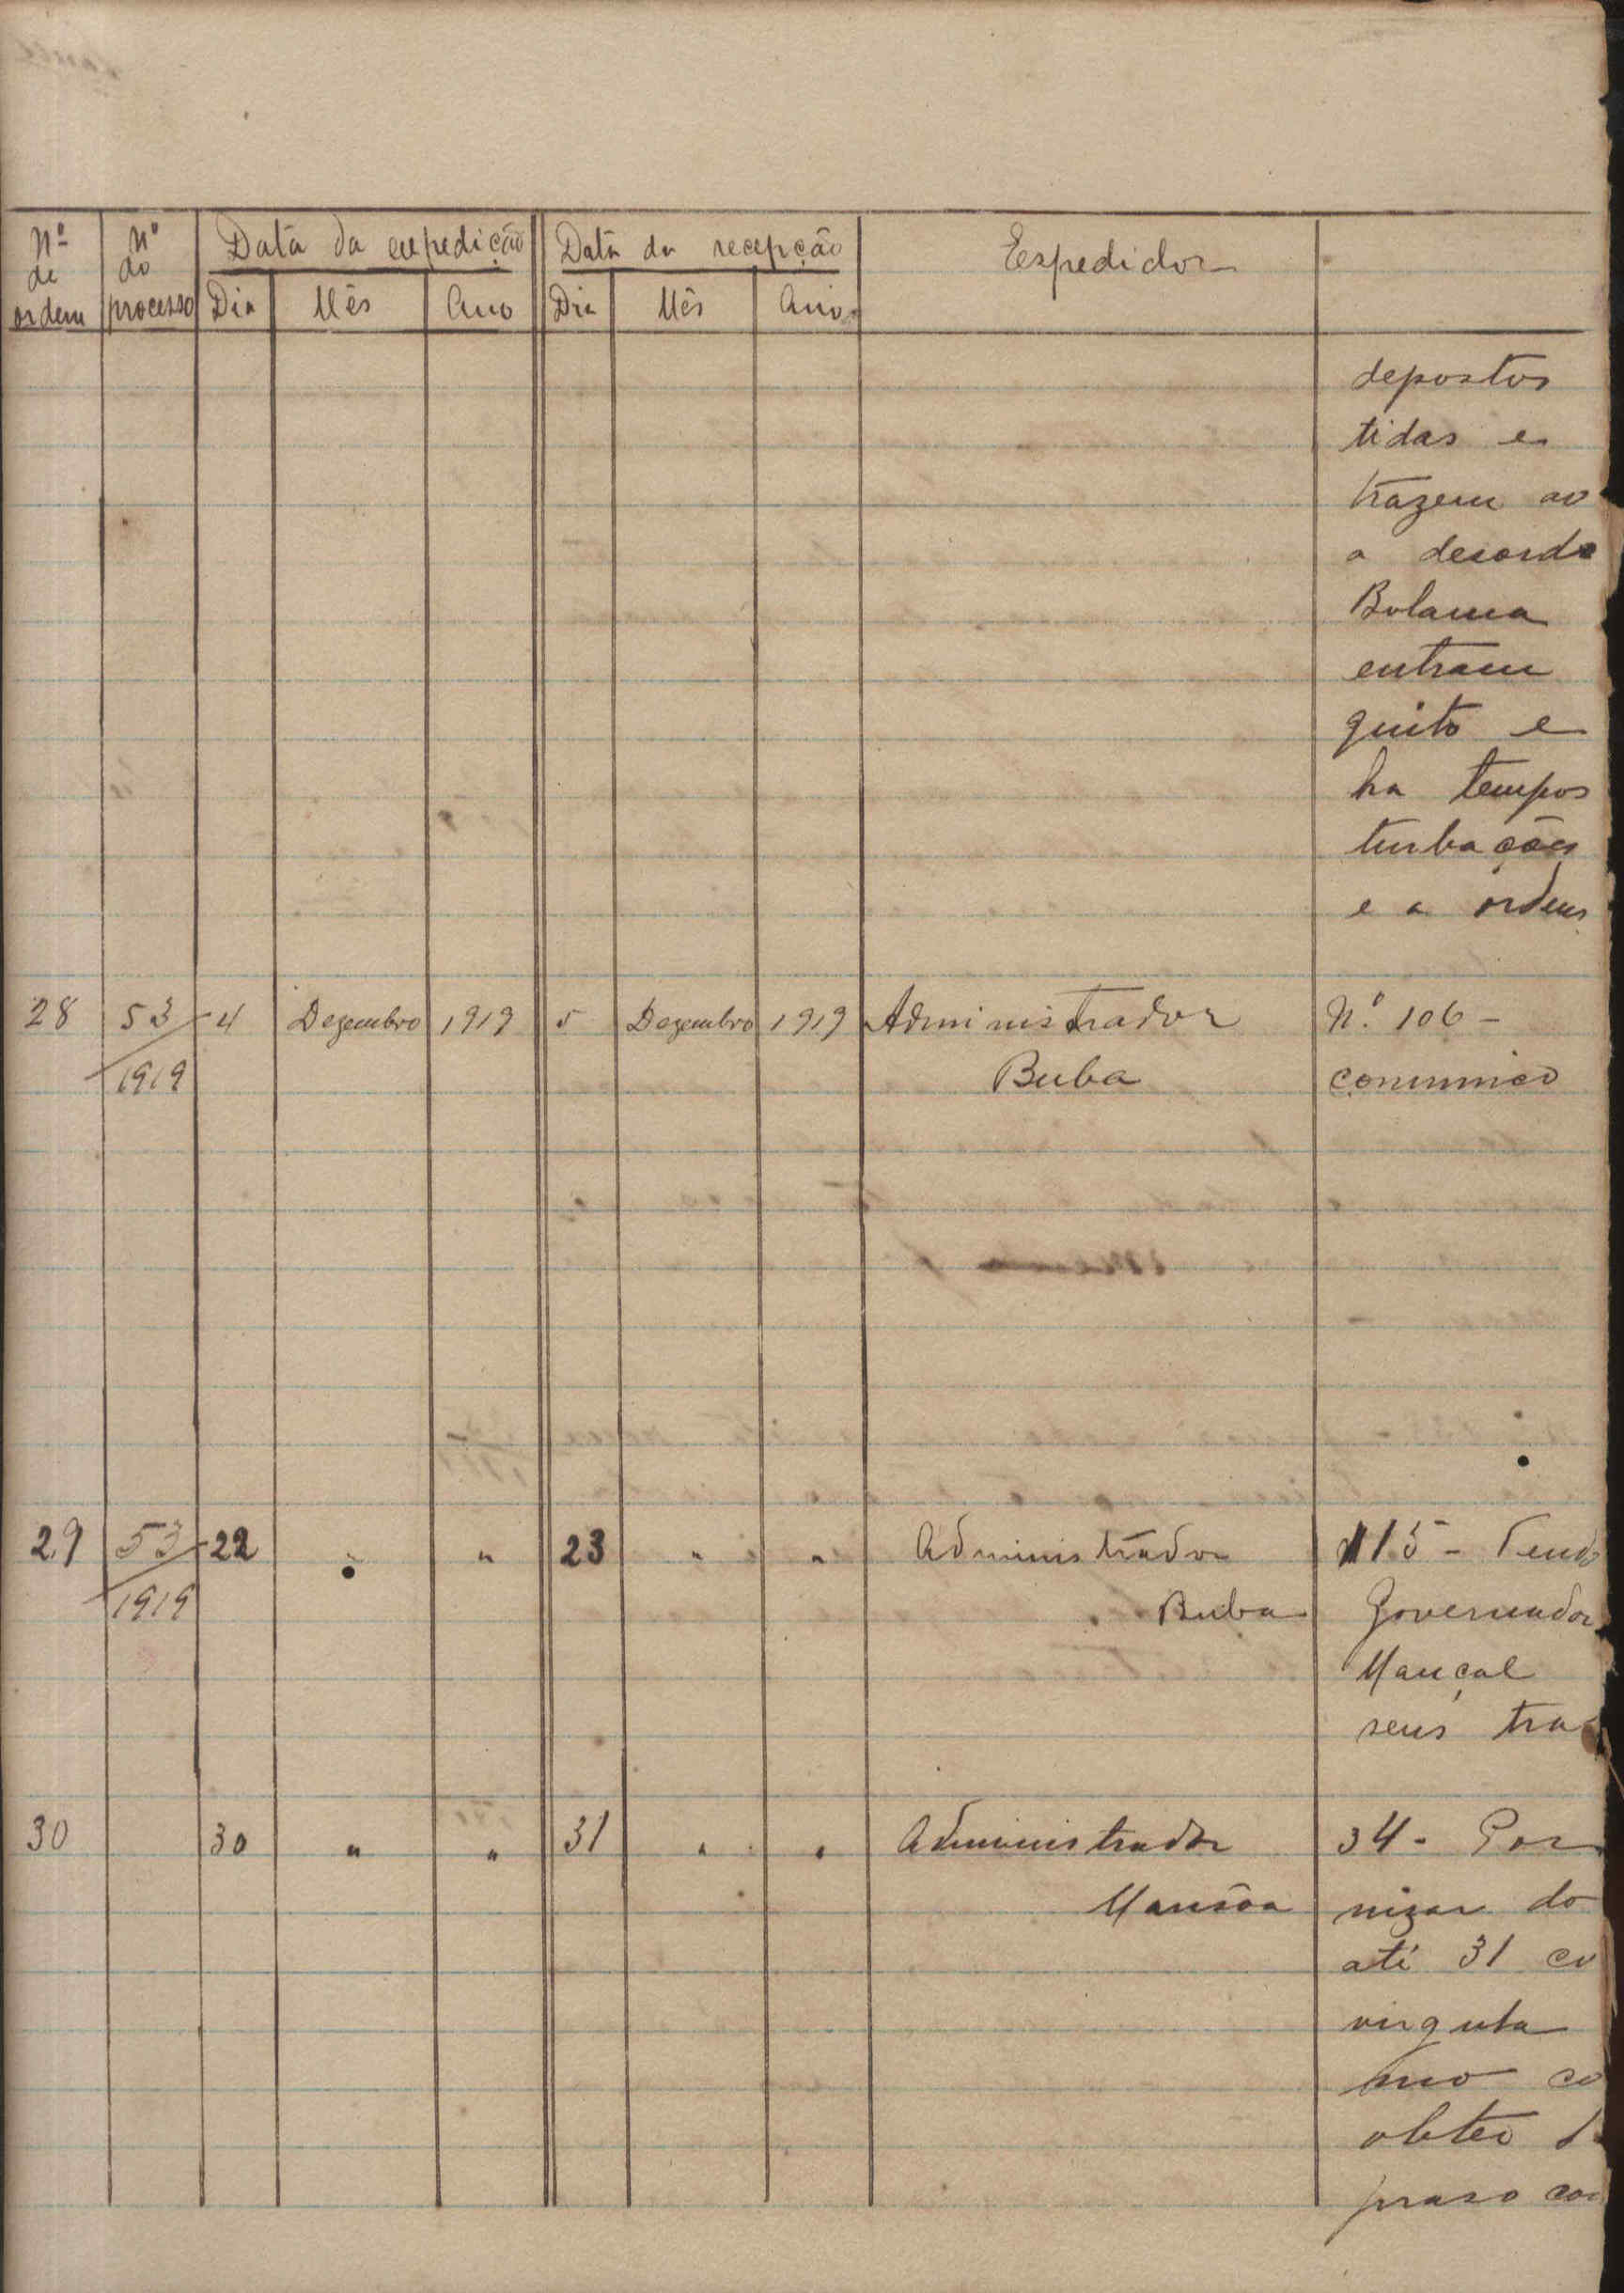 Nº de ordem | Nº do processo | Data da expedição | Data da recepção | Expedidor
Dia | Mês | Ano | Dia | Mês | Ano
depostos
tidas e
trazem ao
a desorde
Bolama
entram
quito e
ha tempos
turbações
e a ordens
28 | 53/1919 | 4 | Dezembro | 1919 | 5 | Dezembro | 1919 | Administrador | N.º 106 -
Buba | comunico
29 | 53/1919 | 22 | " | " | 23 | " | " | Administrador | 115 - Tendo
Buba | Governador
Mançal
seus tra
30 | 30 | " | " | 31 | " | " | Administrador | 34 - Por
Mansôa | nizar do
até 31 co
virgula
mo co
obter
praso con